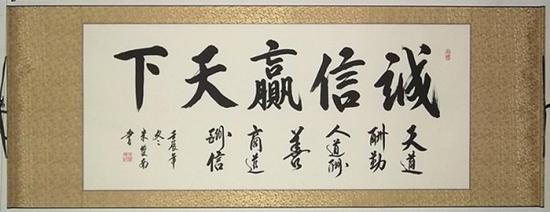 誠信贏天下
天道
酬勤
人道酬
善
商道
酬信
壬辰年
冬